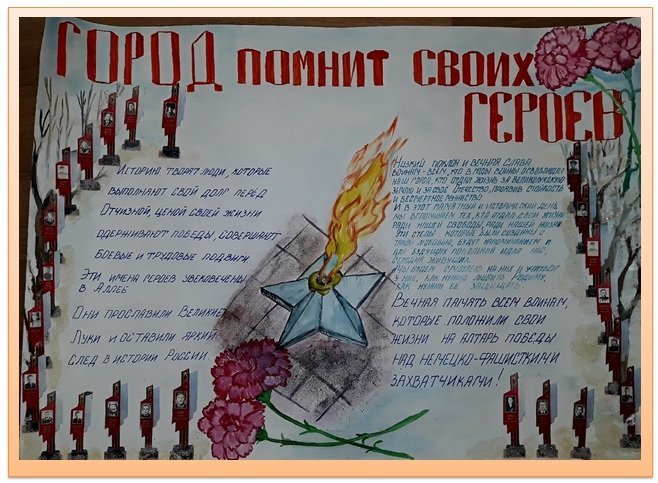 ГОРОД ПОМНИТ СВОИХ
ГЕРОЕВ
Историю творят люди, которые
выполняют свой долг перед
Отчизной, ценой своей жизни
одерживают победы, совершают
боевые и трудовые подвиги
Эти имена героев увековечены
в Аллее.
Они прославили Великие
Луки и оставили яркий
след в истории России.
Низкий поклон и вечная слава
воинам - всем, кто в годы войны освобождал
наш город, кто отдал жизнь за великолукскую
землю и за своё Отечество, проявив стойкость
и бессмертное мужество
И в этот памятный и исторический день,
мы вспоминаем тех, кто отдал свои жизни
ради нашей свободы, ради нашей жизни
Эти стелы которые были созданы с
такой любовью, будут напоминанием и
для будущих поколений
сегодня живущим.
Мы будем смотреть на них и учиться
у них, как нужно любить Родину,
как нужно её защищать.
Вечная память всем воинам,
которые положили свои
жизни на алтарь победы
над немецко-фашисткими
захватчиками!